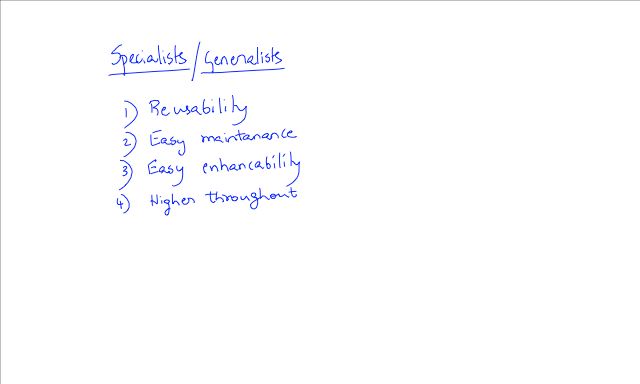 Specialists / Generalists
1) Reusability
2) Easy maintanance
3) Easy enhancability
4) Higher throughout